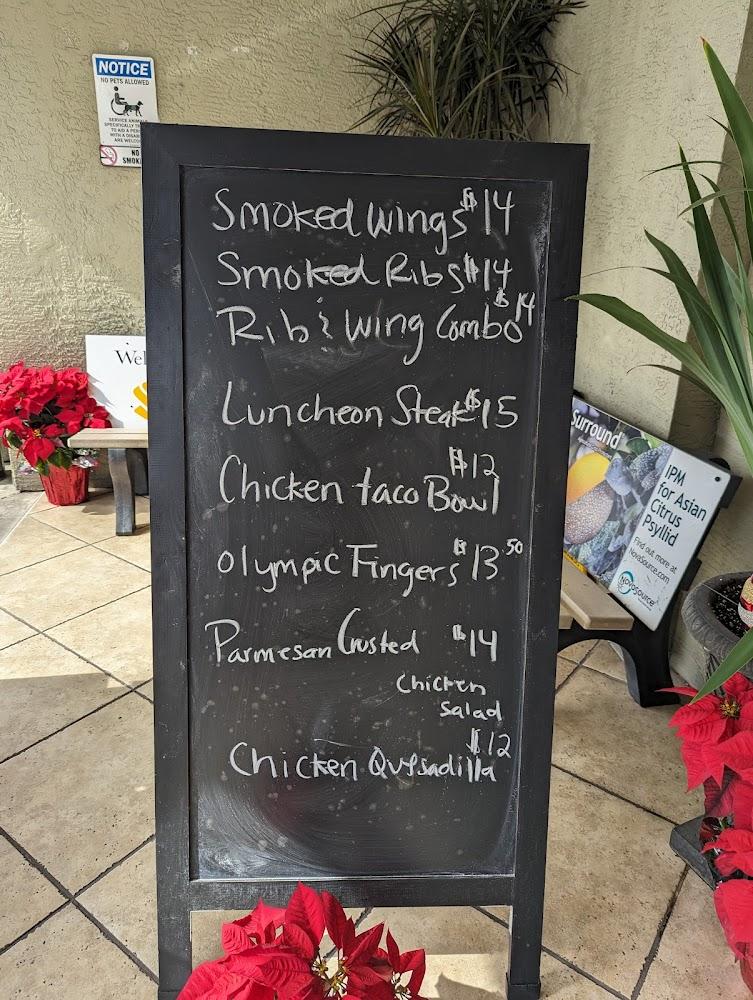 NOTICE
NO PETS ALLOWED
SERVICE ANIM
SPECIFICALLY T
TO AID A PER
WITH A DISAB
ARE WELCO
NO
SMOK
Smoked Wings $14
Smoked Ribs $14
Rib & Wing Combo $14
Luncheon Steak $15
Chicken taco Bowl $12
Olympic Fingers $13.50
Parmesan Crusted $14
Chicken
Salad
Chicken Quesadilla $12
Wel
Surround
IPM
for Asian
Citrus
Psyllid
Find out more at
NovaSource.com
NovaSource